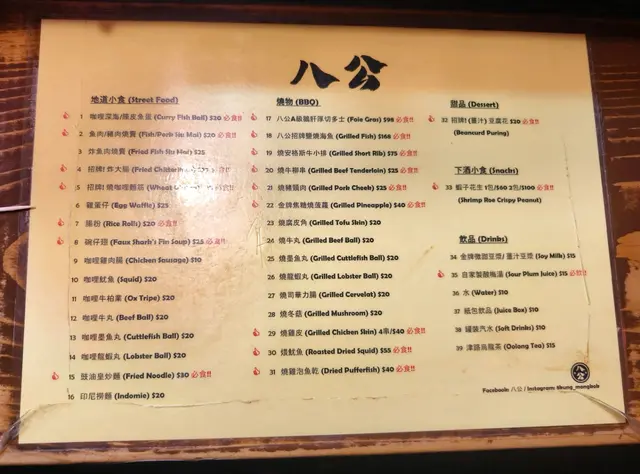 八公
地道小食 (Street Food)
1 咖哩深海/陳皮魚蛋 (Curry Fish Ball) $20 必食!!
2 魚肉/豬肉燒賣 (Fish/Pork Siu Mai) $20 必食!!
3 炸魚肉燒賣 (Fried Fish Siu Mai) $25
4 招牌! 炸大腸 (Fried Chitterlings) 必食!!
5 招牌! 燒咖哩麵筋 (Wheat 必食!!
6 雞蛋仔 (Egg Waffle) $25
7 腸粉 (Rice Rolls) $20 必食!!
8 碗仔翅 (Faux Shark's Fin Soup) $25 必食!!
9 咖哩雞肉腸 (Chicken Sausage) $10
10 咖哩魷魚 (Squid) $20
11 咖哩牛柏葉 (Ox Tripe) $20
12 咖哩牛丸 (Beef Ball) $20
13 咖哩墨魚丸 (Cuttlefish Ball) $20
14 咖哩龍蝦丸 (Lobster Ball) $20
15 豉油皇炒麵 (Fried Noodle) $30 必食!!
16 印尼撈麵 (Indomie) $20
燒物 (BBQ)
17 八公A級鵝肝厚切多士 (Foie Gras) $98 必食!!
18 八公招牌鹽燒海魚 (Grilled Fish) $168 必食!!
19 燒安格斯牛小排 (Grilled Short Rib) $75 必食!!
20 燒牛柳串 (Grilled Beef Tenderloin) $25 必食!!
21 燒豬頸肉 (Grilled Pork Cheek) $25 必食!!
22 金牌焦糖燒菠蘿 (Grilled Pineapple) $40 必食!!
23 燒腐皮角 (Grilled Tofu Skin) $20
24 燒牛丸 (Grilled Beef Ball) $20
25 燒墨魚丸 (Grilled Cuttlefish Ball) $20
26 燒龍蝦丸 (Grilled Lobster Ball) $20
27 燒司華力腸 (Grilled Cervelat) $20
28 燒冬菇 (Grilled Mushroom) $20
29 燒雞皮 (Grilled Chicken Skin) 4串/$40 必食!!
30 燒魷魚 (Roasted Dried Squid) $55 必食!!
31 燒雞泡魚乾 (Dried Pufferfish) $40 必食!!
甜品 (Dessert)
32 招牌! (薑汁) 豆腐花 $20 必食!!
(Beancurd Puring)
下酒小食 (Snacks)
33 蝦子花生 1包/$60 2包/$100 必食!!
(Shrimp Roe Crispy Peanut)
飲品 (Drinks)
34 金牌微甜豆漿/ 薑汁豆漿 (Soy Milk) $15
35 自家製酸梅湯 (Sour Plum Juice) $15 必飲!!
36 水 (Water) $10
37 紙包飲品 (Juice Box) $10
38 罐裝汽水 (Soft Drinks) $10
39 津路烏龍茶 (Oolong Tea) $15
八公
Facebook: 八公 / Instagram: 8kung_mongkok